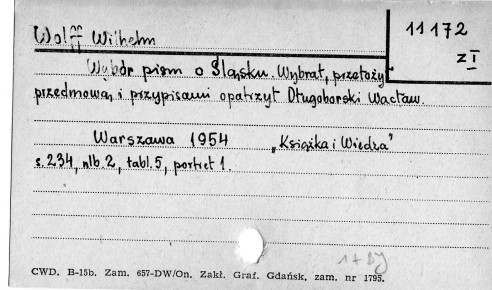 Wolff Wilhelm
11172
z I
Wybór pism o Śląsku. Wybrał, przełoży
przedmową i przypisami opatrzył Długoborski Wacław.
Warszawa 1954 „Książka i Wiedza"
s. 234, nlb. 2, tabl. 5, portret 1.
CWD. B-15b. Zam. 657-DW/On. Zakł. Graf. Gdańsk, zam. nr 1795.